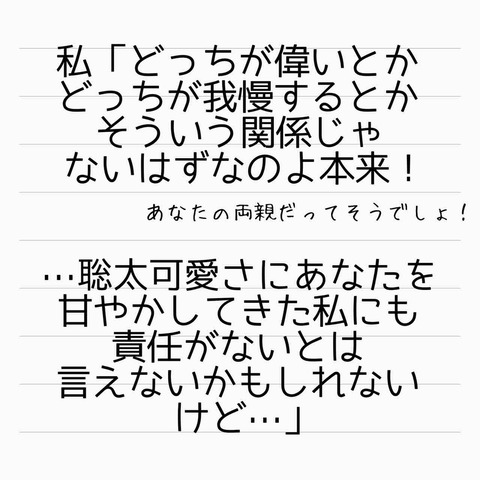 私「どっちが偉いとか
どっちが我慢するとか
そういう関係じゃ
ないはずなのよ本来！
あなたの両親だってそうでしょ！
…聡太可愛さにあなたを
甘やかしてきた私にも
責任がないとは
言えないかもしれない
けど…」